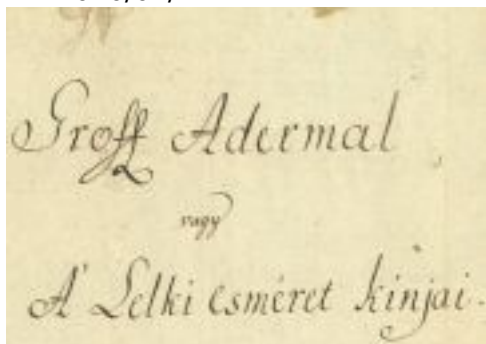 Groff Adermal
vagy
A' Lelki esméret kínjai.